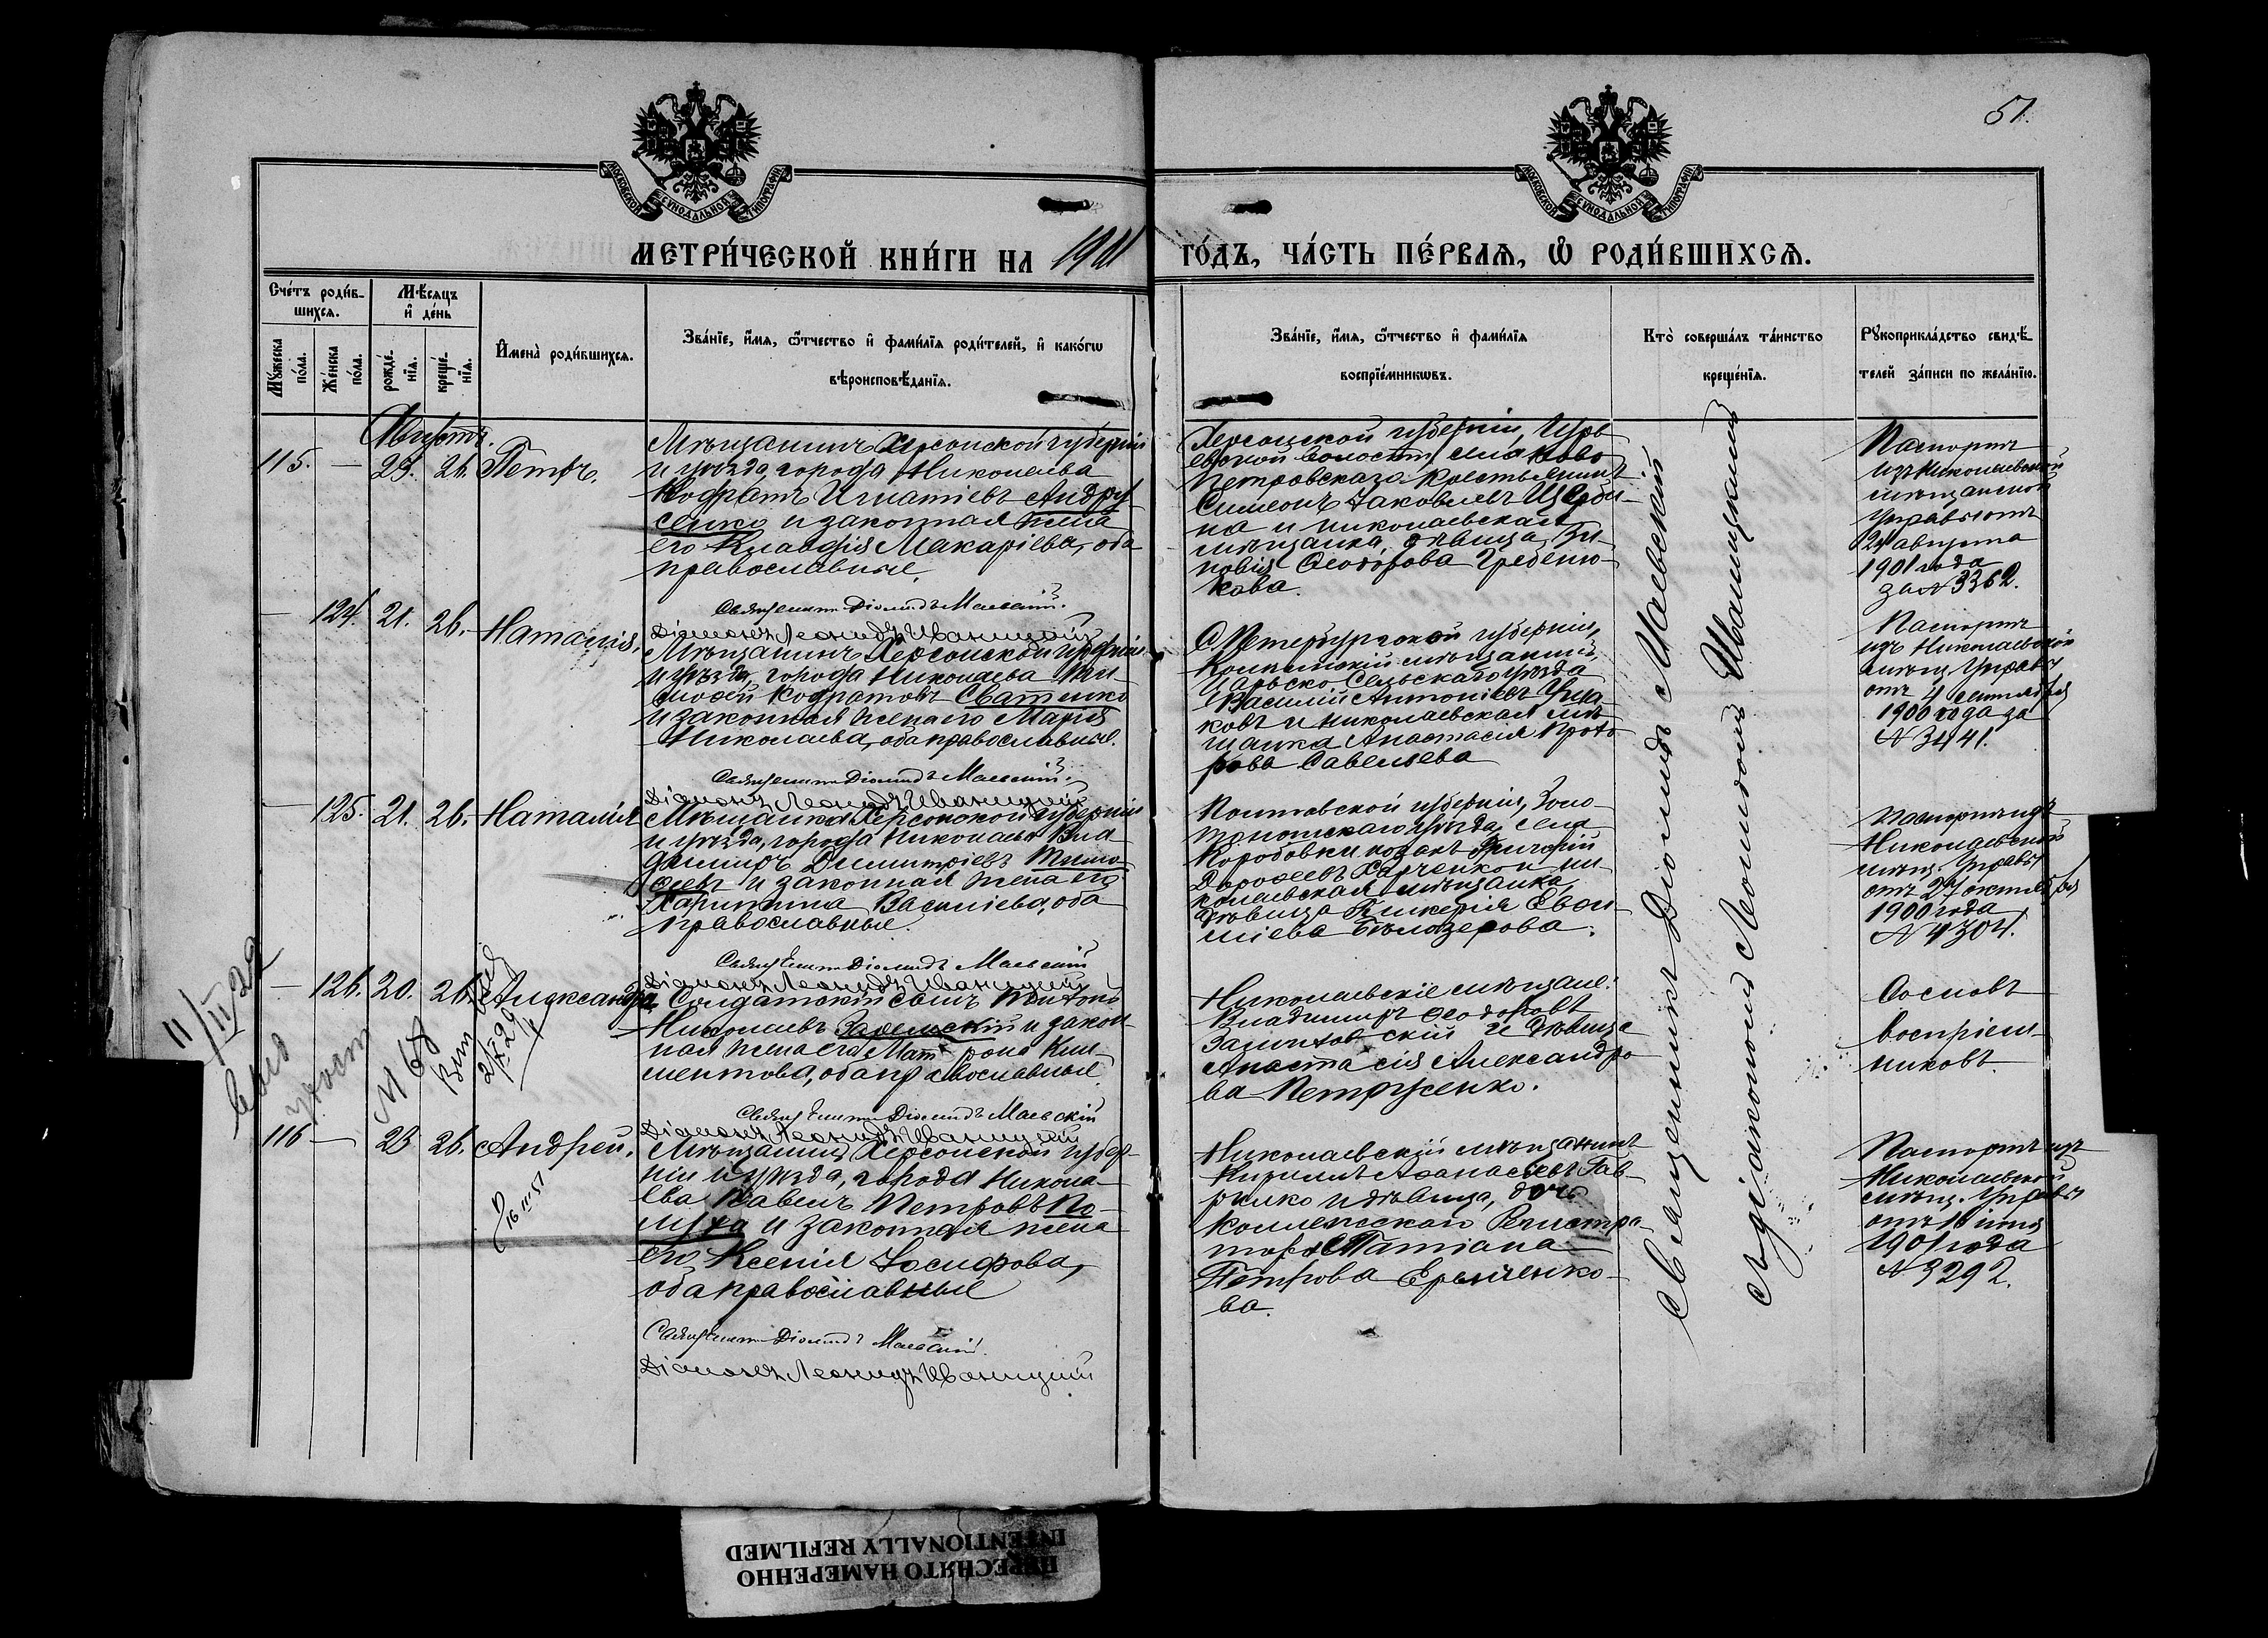 51.
МОСКОВСКОЙ СѴНОДАЛЬНОЙ ТИПОГРАФІИ
МОСКОВСКОЙ СѴНОДАЛЬНОЙ ТИПОГРАФІИ
МЕТРИ́ЧЕСКОЙ КНИ́ГИ НА 1901 ГО́ДЪ, ЧА́СТЬ ПЕ́РВАѦ, Ѿ РОДИ́ВШИХСѦ.
Сче́тъ роди́в-
шихсѧ.
Мꙋ́жеска по́ла.
Же́нска по́ла.
Мѣ́сѧцъ
и҆ де́нь
рожде́-
нїѧ.
креще́-
нїѧ.
И҆мена̀ роди́вшихсѧ.
Зва́нїе, и҆́мѧ, ѻ҆́тчество и҆ фами́лїѧ роди́телей, и҆ како́гѡ
вѣроисповѣ́данїѧ.
Зва́нїе, и҆́мѧ, ѻ҆́тчество и҆ фами́лїѧ
воспрїе́мникѡвъ.
Кто̀ соверша́лъ та́инство
креще́нїѧ.
Рꙋкоприкла́дство свидѣ́-
телей за́писи по жела́нїю.
Августъ.
115. — 23. 26. Петръ.
Мѣщанинъ Херсонской губерніи
и уѣзда, города Николаева
Кодратъ Игнатіевъ Андру
сенко и законная жена
его Клавдія Макаріева, оба
православные.
Священникъ Діомидъ Маевскій.
Діаконъ Леонидъ Иваницкій
Херсонской губерніи,
евской волости, села Ново
Петровскаго крестьянинъ
Симеонъ Іаковлевъ
на и николаевская
мѣщанка, дѣвица Зи-
новія Ѳеодорова Гребеню-
кова.
Паспортъ
изъ Николаевской
мѣщанской
Управы отъ
24 августа
1901 года
за N 3362.
— 124. 21. 26. Наталія,
Мѣщанинъ Херсонской губерніи
и уѣзда, города Николаева Ти-
моѳей Кодратовъ Сватенко
и законная жена его Марія
Николаева, оба православные.
Священникъ Діомидъ Маевскій.
Діаконъ Леонидъ Иваницкій
С Петербургской губерніи,
мѣщанинъ,
Царьско Сельскаго уѣзда
Василій Антоніевъ
ковъ и николаевская мѣ
щанка Анастасія Прохо
рова Савельева
Паспортъ
изъ Николаевской
мѣщ. Управы
отъ 4 сентября
1900 года за
N 3441.
— 125. 21. 26. Наталія
Мѣщанинъ Херсонской губерніи
и уѣзда, города Николаева Вла
диміръ Димитріевъ Тимо
ѳеевъ и законная жена его
Харитина Василіева, оба
православные.
Священникъ Діомидъ Маевскій
Діаконъ Леонидъ Иваницкій
Полтавской губерніи, Золо-
тоношскаго уѣзда, села
Коробовки козакъ Григорій
Дороѳеевъ Харченко и ни-
колаевская мѣщанка,
дѣвица Гликерія Евам-
піева Бѣлозерова.
Паспортъ изъ
Николаевской
мѣщ. Управы
отъ 27 октября
1900 года
N 4304.
— 126. 20. 26. Александра
Солдатскій сынъ Тихонъ
Николаевъ Заремскій и закон
ная жена его Матрона Кли-
ментова, оба православные
Священникъ Діомидъ Маевскій
Діаконъ Леонидъ Иваницкій
Николаевскіе мѣщане:
Владиміръ Ѳеодоровъ
и дѣвица
Анастасія Александро
ва Петрусенко.
Со словъ
воспріем-
никовъ.
11/II 29
N 68
116 — 23 26. Андрей.
16 III 51
Мѣщанинъ Херсонской губер-
ніи и уѣзда, города Никола-
ева Павелъ Петровъ По-
луха и законная жена
его Ксенія Іосифова,
оба православные
Священникъ Діомидъ Маевскій.
Діаконъ Леонидъ Иваницкій
Николаевскій мѣщанинъ
Кириллъ Аѳанасіевъ Гав-
рилко и дѣвица, дочь
Коллежскаго Регистра-
тора Татіана
Петрова Ерьменко-
ва.
Паспортъ изъ
Николаевской
мѣщ. Управы
отъ 16 іюня
1901 года
N 3292.
Священникъ Діомидъ Маевскій
и діаконъ Леонидъ Иваницкій
ПЕРЕСНЯТО НАМЕРЕННО
INTENTIONALLY REFILMED